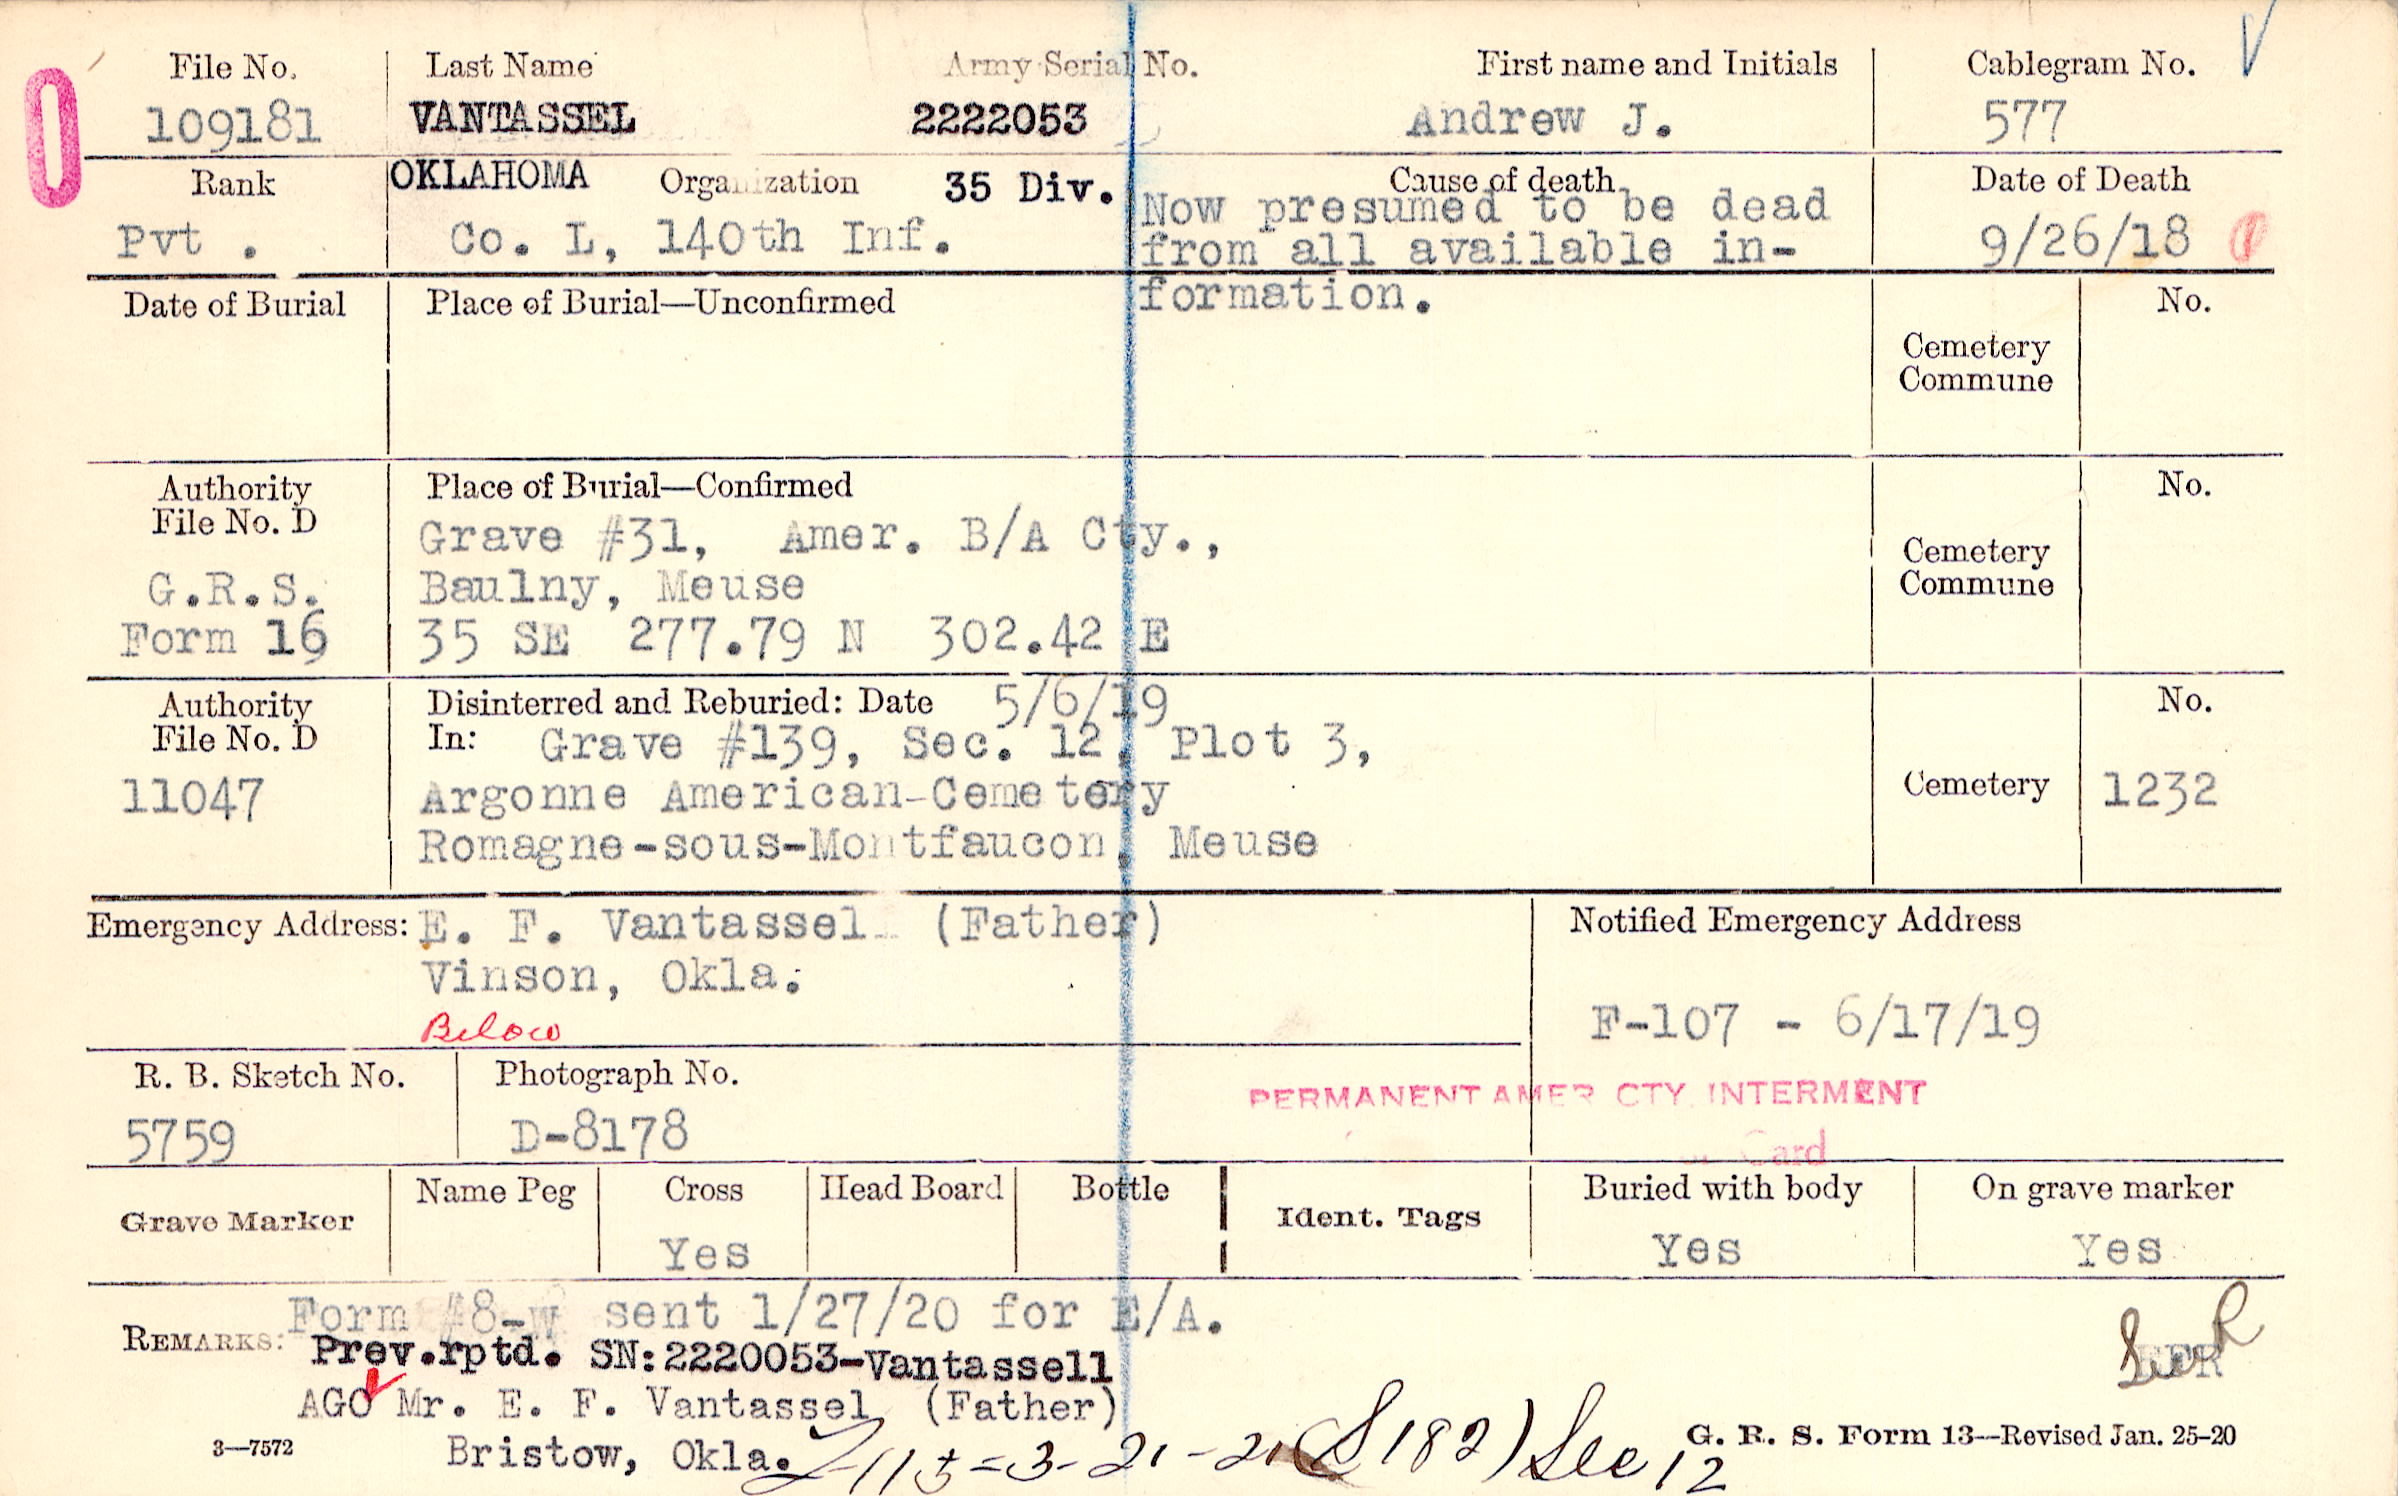 File No. Last Name Army Serial No. First name and Initials Cablegram No.
109181 VANTASSEL 2222053 Andrew J. 577
Rank OKLAHOMA Organization 35 Div. Cause of death Date of Death
Pvt . Co. L, 140th Inf. Now presumed to be dead 9/26/18
from all available in-
formation.
Date of Burial Place of Burial—Unconfirmed No.
Cemetery
Commune
Authority Place of Burial—Confirmed No.
File No. D Grave #31, Amer. B/A Cty.,
G.R.S. Baulny, Meuse Cemetery
Form 16 35 SE 277.79 N 302.42 E Commune
Authority Disinterred and Reburied: Date 5/6/19 No.
File No. D In: Grave #139, Sec. 12, Plot 3,
11047 Argonne American-Cemetery Cemetery 1232
Romagne-sous-Montfaucon, Meuse
Emergency Address: E. F. Vantassel (Father) Notified Emergency Address
Vinson, Okla.
Below F-107 - 6/17/19
R. B. Sketch No. Photograph No.
5759 D-8178
PERMANENT AMER CTY. INTERMENT
Card
Grave Marker Name Peg Cross Head Board Bottle Ident. Tags Buried with body On grave marker
Yes Yes Yes
Form #8-W sent 1/27/20 for E/A.
REMARKS: Prev.rptd. SN:2220053-Vantassell
AGO Mr. E. F. Vantassel (Father)
3—7572 Bristow, Okla. (S182) Sec 12 G. R. S. Form 13—Revised Jan. 25-20